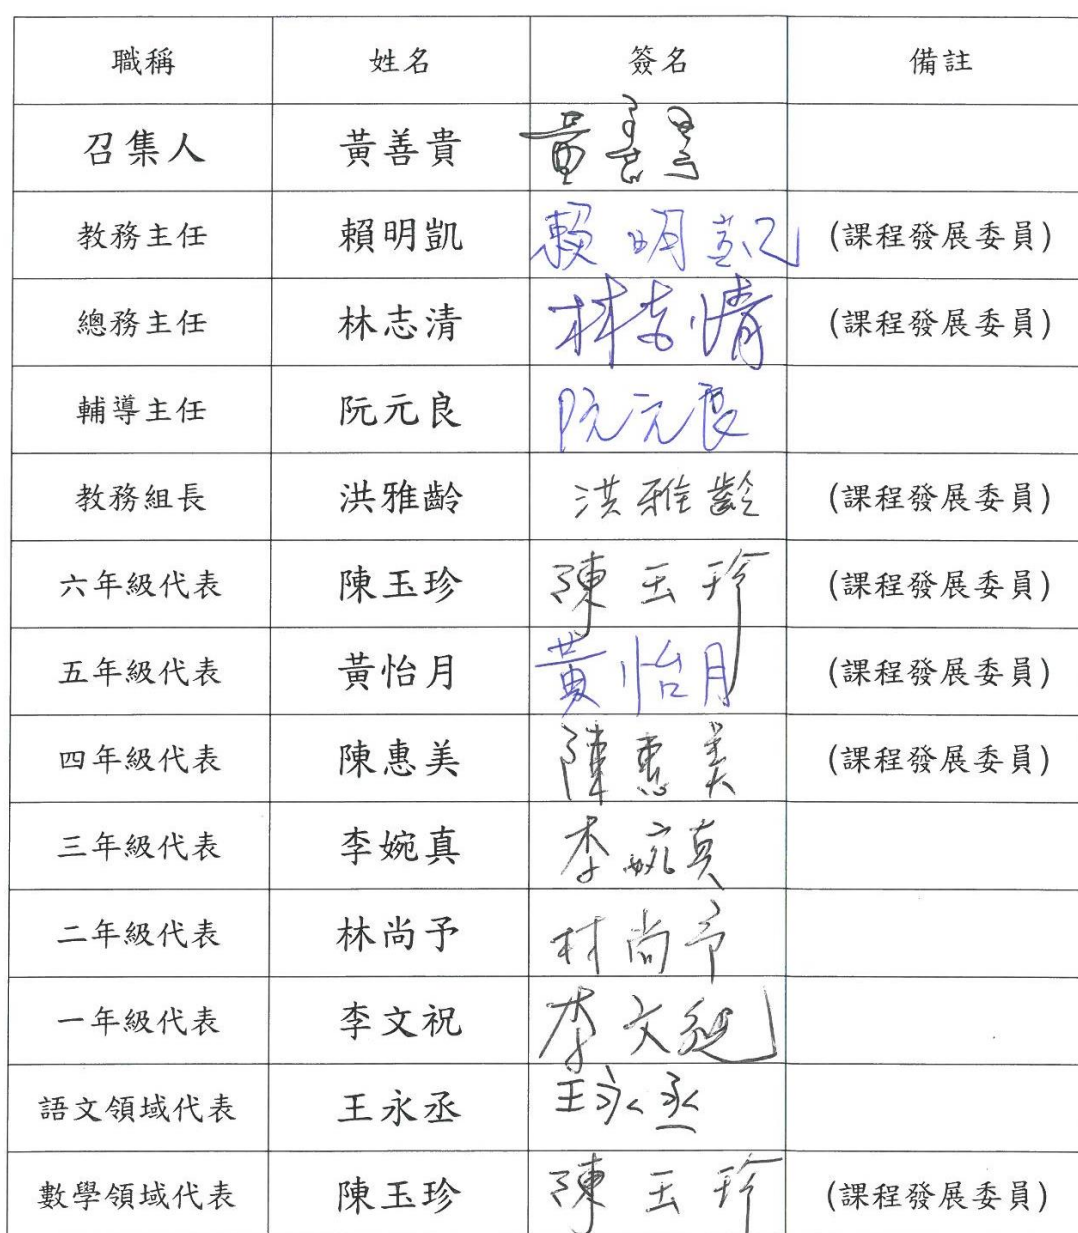 職稱 姓名 簽名 備註
召集人 黃善貴 黃善貴
教務主任 賴明凱 賴明凱 (課程發展委員)
總務主任 林志清 林志清 (課程發展委員)
輔導主任 阮元良 阮元良
教務組長 洪雅齡 洪雅齡 (課程發展委員)
六年級代表 陳玉珍 陳玉珍 (課程發展委員)
五年級代表 黃怡月 黃怡月 (課程發展委員)
四年級代表 陳惠美 陳惠美 (課程發展委員)
三年級代表 李婉真 李婉真
二年級代表 林尚予 林尚予
一年級代表 李文祝 李文
語文領域代表 王永丞 王永丞
數學領域代表 陳玉珍 陳玉珍 (課程發展委員)